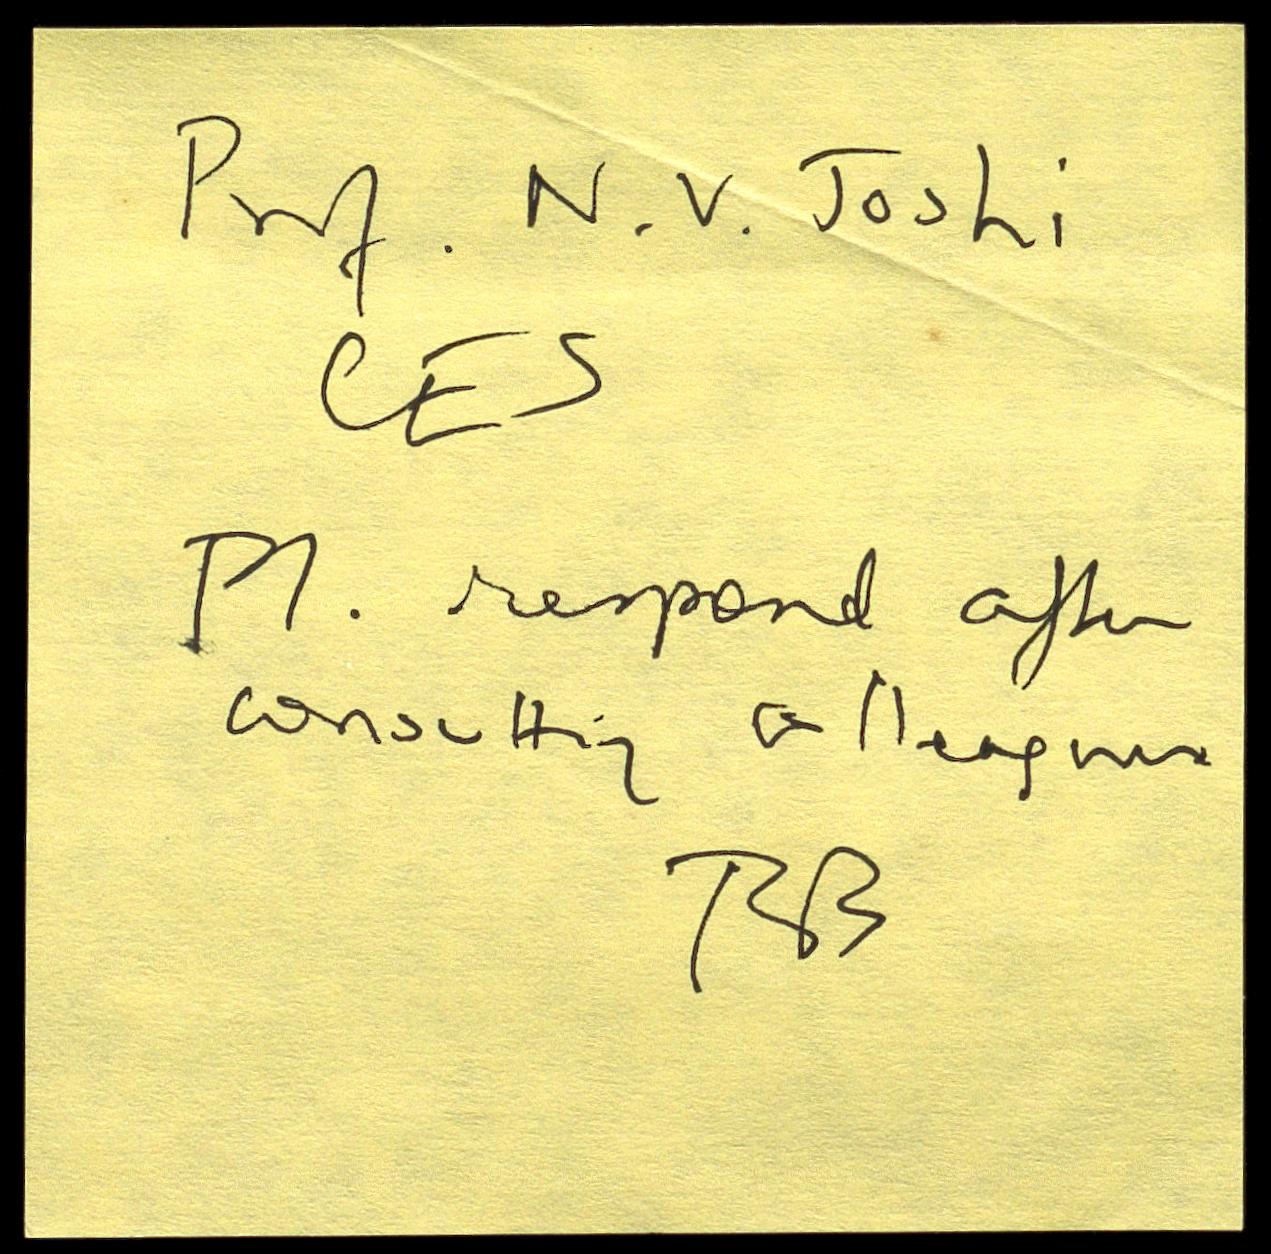 Prof. N.V. Joshi
CES
Pl. respond after
consulting colleagues
RB